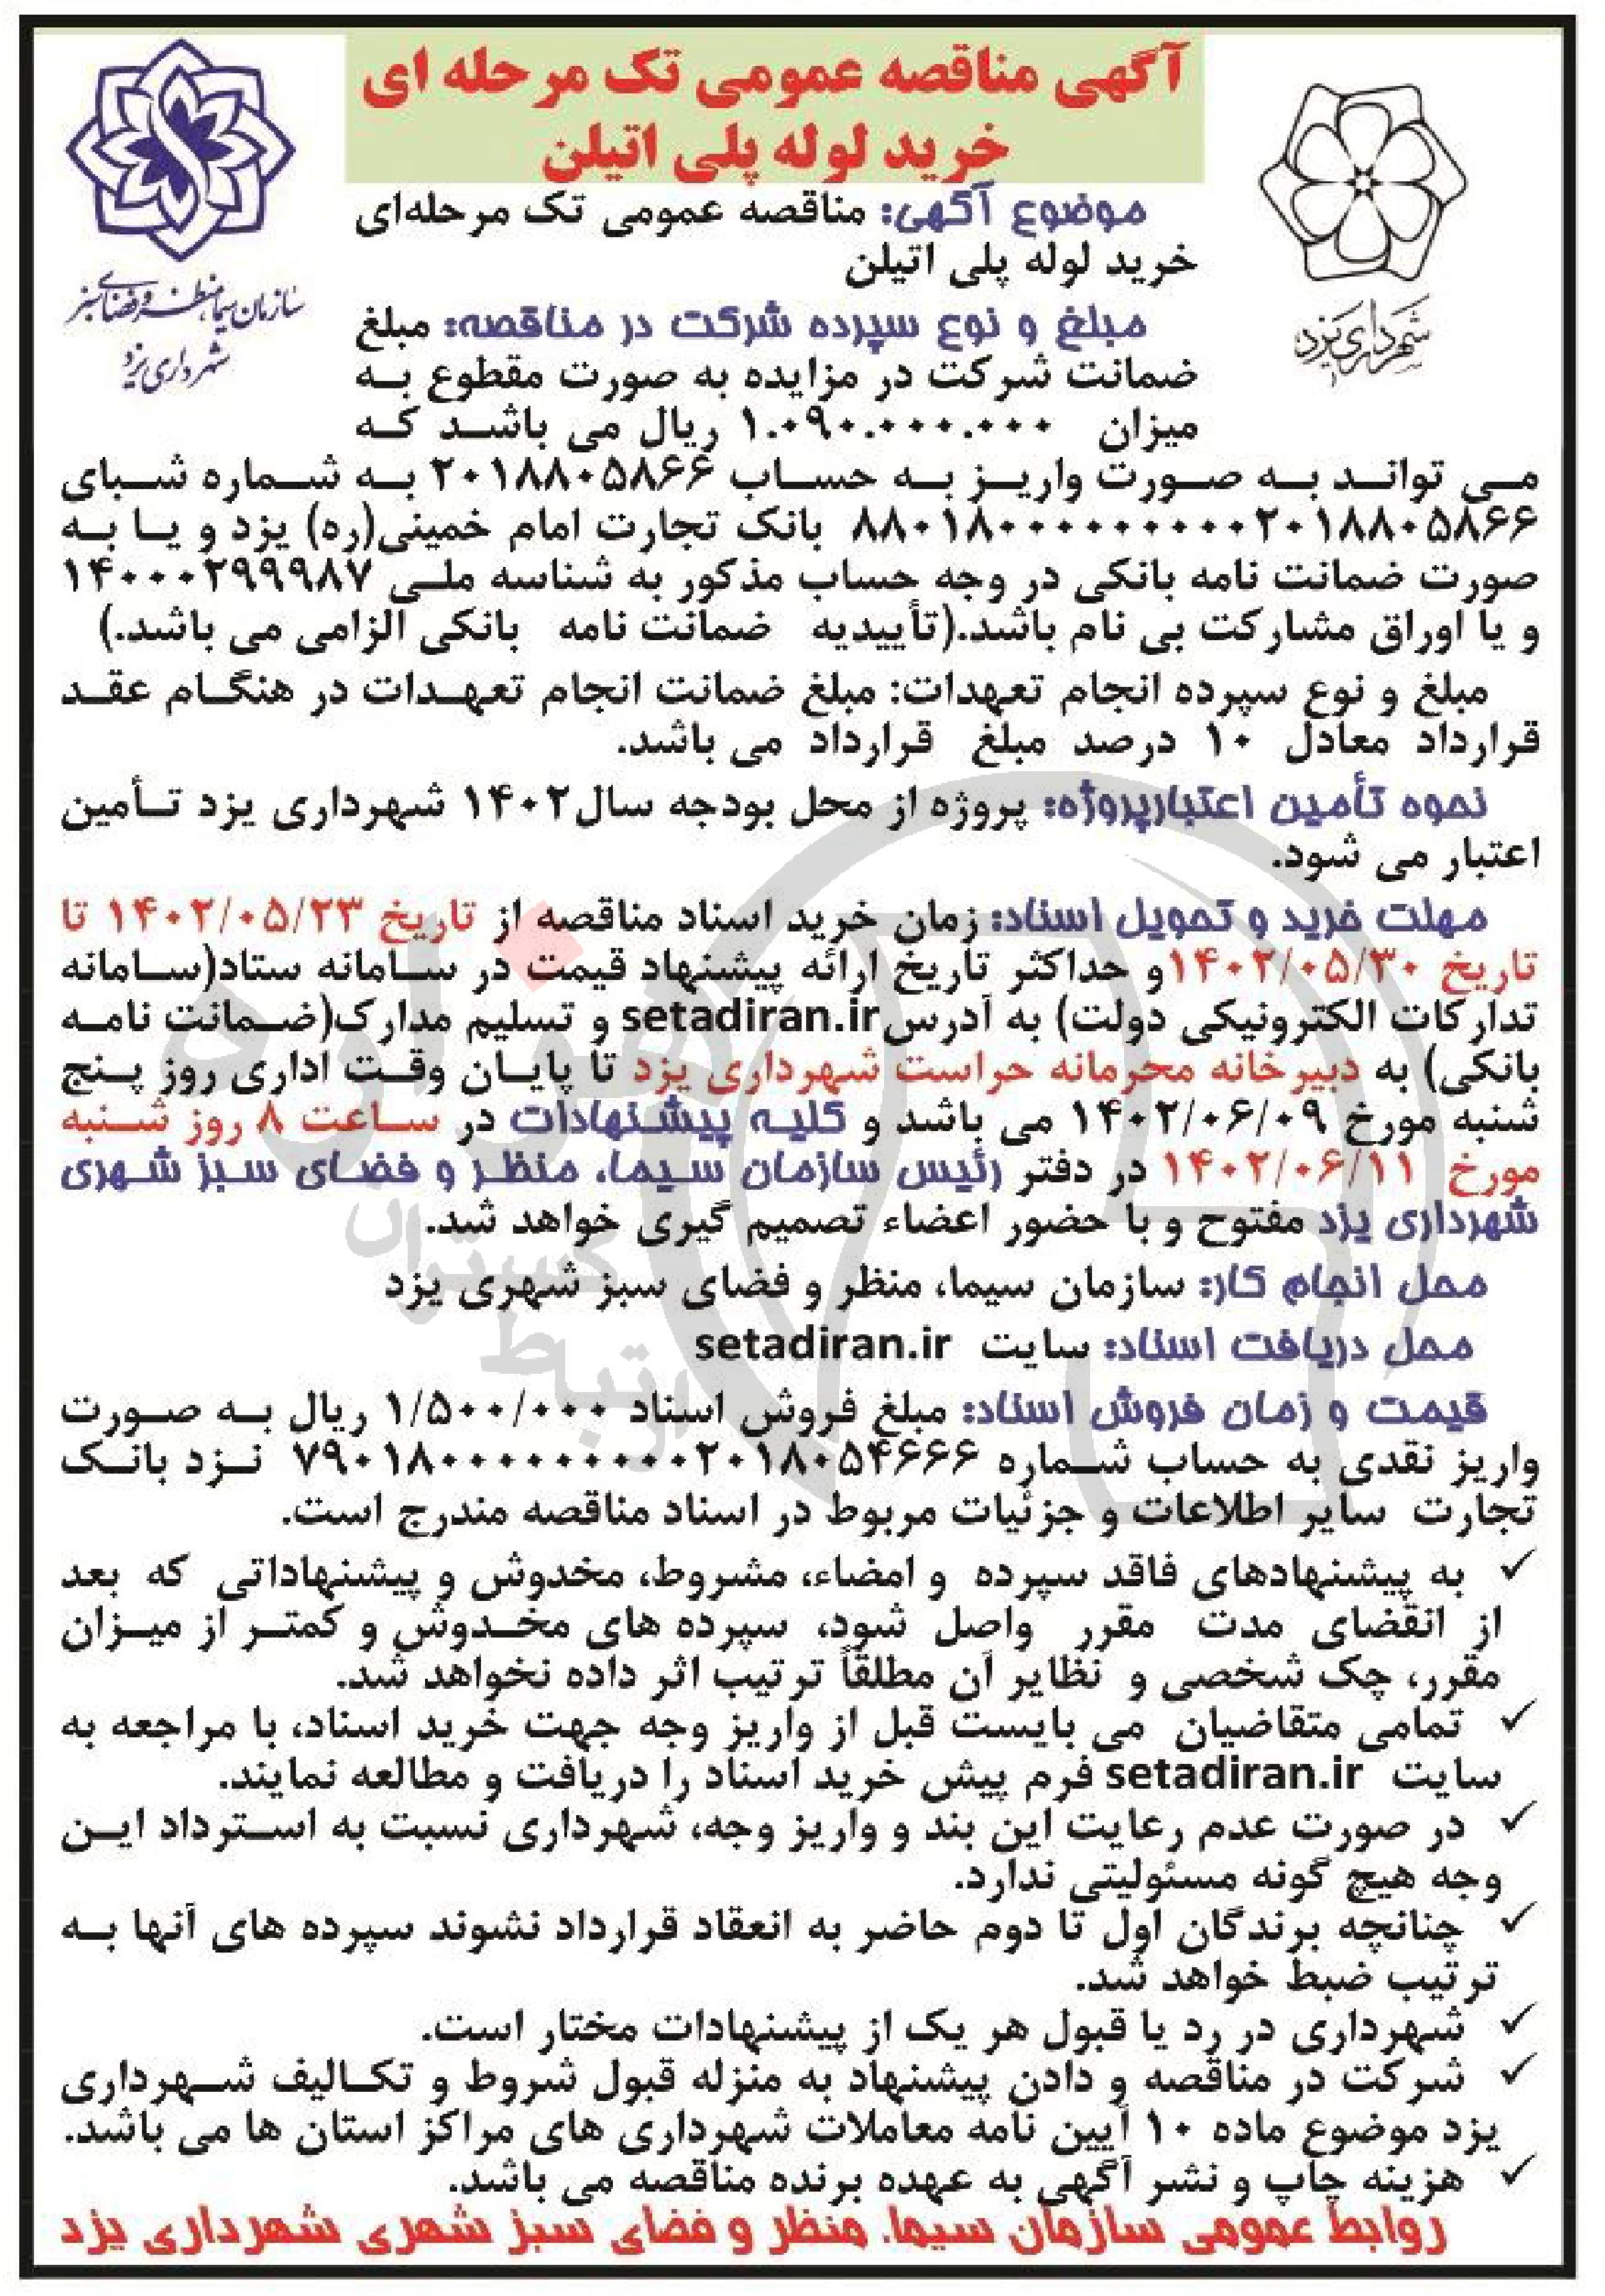 آگهی مناقصه عمومی تک مرحله ای
خرید لوله پلی اتیلن
سازمان سیما، منظر و فضای سبز
شهرداری یزد
شهرداری یزد
موضوع آگهی: مناقصه عمومی تک مرحله‌ای
خرید لوله پلی اتیلن
مبلغ و نوع سپرده شرکت در مناقصه: مبلغ
ضمانت شرکت در مزایده به صورت مقطوع به
میزان ۱.۰۹۰.۰۰۰.۰۰۰ ریال می باشد که
می تواند به صورت واریز به حساب ۲۰۱۸۸۰۵۸۶۶ به شماره شبای
۸۸۰۱۸۰۰۰۰۰۰۰۰۰۰۲۰۱۸۸۰۵۸۶۶ بانک تجارت امام خمینی(ره) یزد و یا به
صورت ضمانت نامه بانکی در وجه حساب مذکور به شناسه ملی ۱۴۰۰۰۲۹۹۹۸۷
و یا اوراق مشارکت بی نام باشد.(تأییدیه ضمانت نامه بانکی الزامی می باشد.)
مبلغ و نوع سپرده انجام تعهدات: مبلغ ضمانت انجام تعهدات در هنگام عقد
قرارداد معادل ۱۰ درصد مبلغ قرارداد می باشد.
نحوه تأمین اعتبارپروژه: پروژه از محل بودجه سال۱۴۰۲ شهرداری یزد تأمین
اعتبار می شود.
مهلت خرید و تحویل اسناد: زمان خرید اسناد مناقصه از تاریخ ۱۴۰۲/۰۵/۲۳ تا
تاریخ ۱۴۰۲/۰۵/۳۰و حداکثر تاریخ ارائه پیشنهاد قیمت در سامانه ستاد(سامانه
تدارکات الکترونیکی دولت) به آدرسsetadiran.ir و تسلیم مدارک(ضمانت نامه
بانکی) به دبیرخانه محرمانه حراست شهرداری یزد تا پایان وقت اداری روز پنج
شنبه مورخ ۱۴۰۲/۰۶/۰۹ می باشد و کلیه پیشنهادات در ساعت ۸ روز شنبه
مورخ ۱۴۰۲/۰۶/۱۱ در دفتر رئیس سازمان سیما، منظر و فضای سبز شهری
شهرداری یزد مفتوح و با حضور اعضاء تصمیم گیری خواهد شد.
محل انجام کار: سازمان سیما، منظر و فضای سبز شهری یزد
محل دریافت اسناد: سایت setadiran.ir
قیمت و زمان فروش اسناد: مبلغ فروش اسناد ۱/۵۰۰/۰۰۰ ریال به صورت
واریز نقدی به حساب شماره ۷۹۰۱۸۰۰۰۰۰۰۰۰۰۰۲۰۱۸۰۵۴۶۶۶ نزد بانک
تجارت سایر اطلاعات و جزئیات مربوط در اسناد مناقصه مندرج است.
✓ به پیشنهادهای فاقد سپرده و امضاء، مشروط، مخدوش و پیشنهاداتی که بعد
از انقضای مدت مقرر واصل شود، سپرده های مخدوش و کمتر از میزان
مقرر، چک شخصی و نظایر آن مطلقاً ترتیب اثر داده نخواهد شد.
✓ تمامی متقاضیان می بایست قبل از واریز وجه جهت خرید اسناد، با مراجعه به
سایت setadiran.ir فرم پیش خرید اسناد را دریافت و مطالعه نمایند.
✓ در صورت عدم رعایت این بند و واریز وجه، شهرداری نسبت به استرداد این
وجه هیچ گونه مسئولیتی ندارد.
✓ چنانچه برندگان اول تا دوم حاضر به انعقاد قرارداد نشوند سپرده های آنها به
ترتیب ضبط خواهد شد.
✓ شهرداری در رد یا قبول هر یک از پیشنهادات مختار است.
✓ شرکت در مناقصه و دادن پیشنهاد به منزله قبول شروط و تکالیف شهرداری
یزد موضوع ماده ۱۰ آیین نامه معاملات شهرداری های مراکز استان ها می باشد.
✓ هزینه چاپ و نشر آگهی به عهده برنده مناقصه می باشد.
روابط عمومی سازمان سیما، منظر و فضای سبز شهری شهرداری یزد
هزاره
گستران
ارتباط